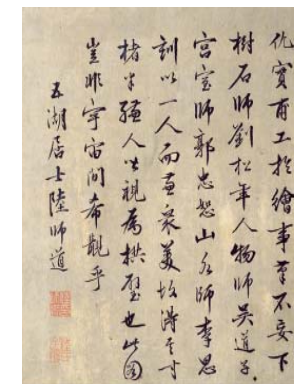 仇實甫工於繪事筆不妄下
樹石師劉松年人物師吳道子
宮室師郭忠恕山水師李思
訓以一人而兼衆美故得其寸
楮半縑人皆視為拱璧也此圖
豈非宇宙間希覯乎
五湖居士陸師道